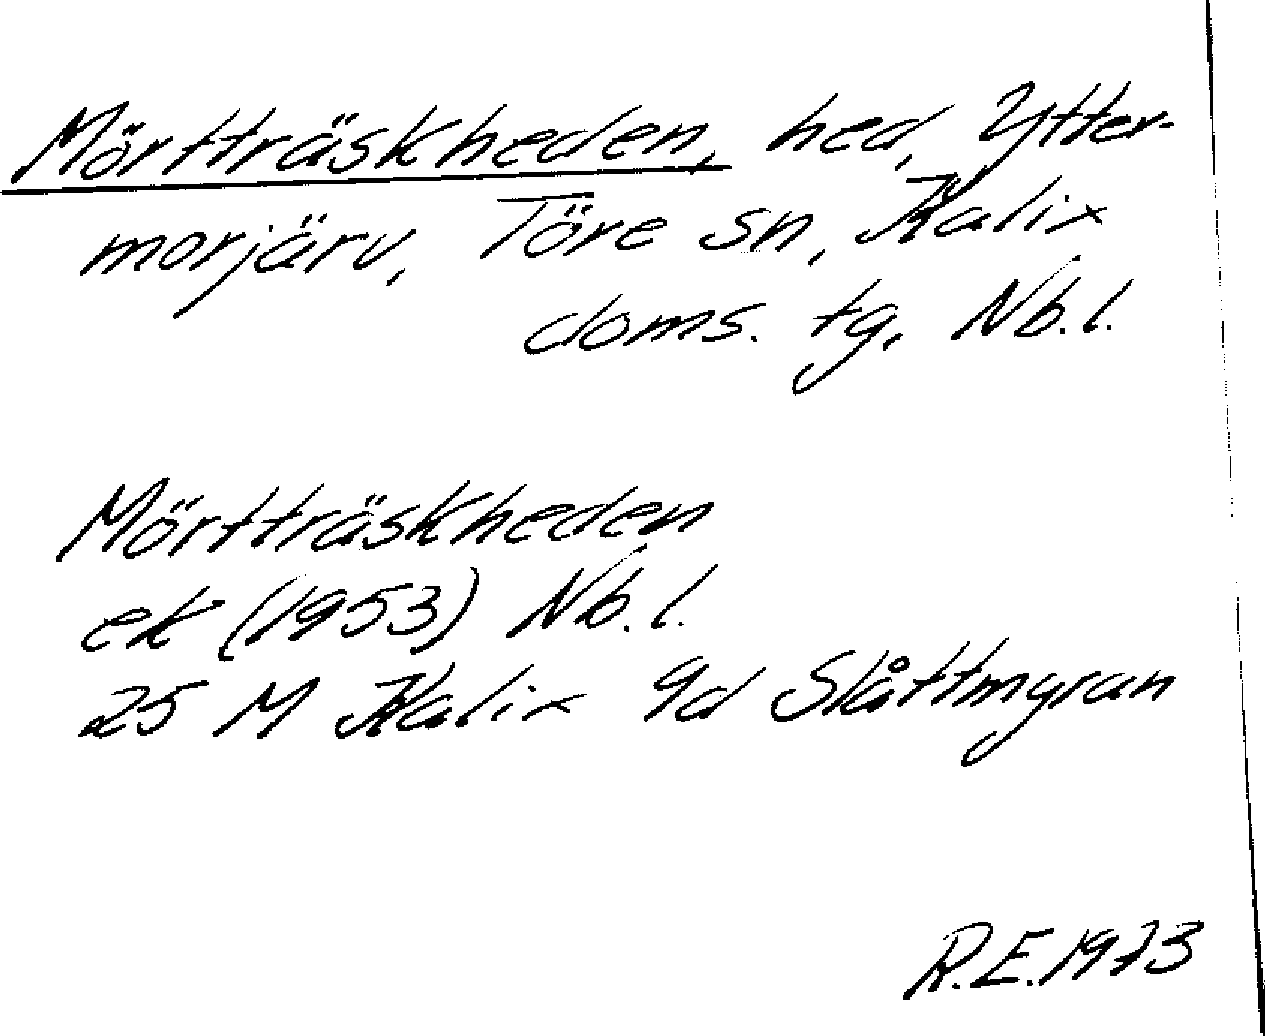 Mörtträskheden, hed, Ytter-
morjärv, Töre sn, Kalix
doms. tg, Nb. l.
Mörtträskheden
ek (1953) Nb. l.
25 M Kalix 9d Slåttmyran
R.E. 1973